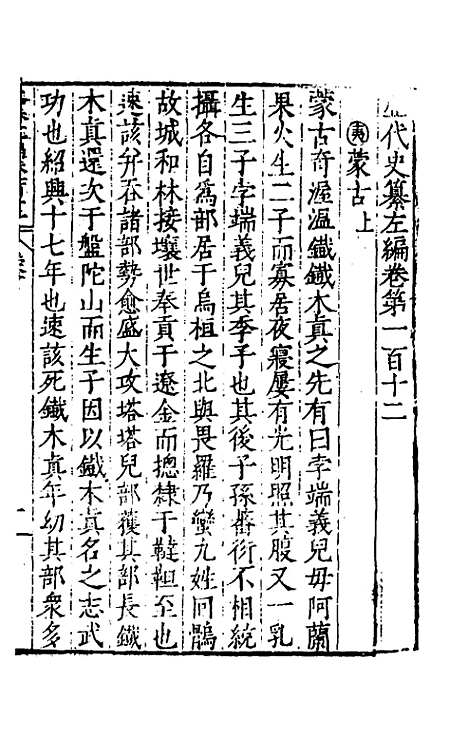 歷代史纂左編卷第一百十二
夷蒙古上
蒙古奇渥溫鐵鐵木真之先有曰孛端義兒母阿蘭
果火生二子而寡居夜寢屢有光明照其腹又一乳
生三子孛端義兒其季子也其後子孫蕃衍不相統
攝各自爲部居于烏桓之北與畏羅乃蠻九姓回鶻
故城和林接壤世奉貢于遼金而摠隸于韃靼至也
速該并吞諸部勢愈盛大攻塔塔兒部獲其部長鐵
木真還次于盤陀山而生子因以鐵木真名之志武
功也紹興十七年也速該死鐵木真年幼其部衆多